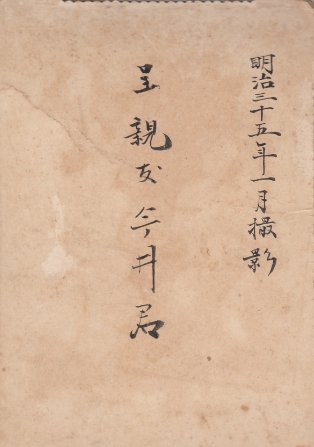 明治三十五年一月撮影
呈親友今井君